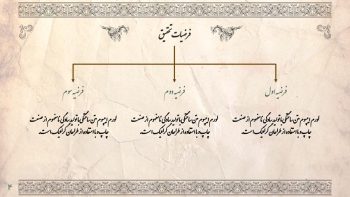 فرضیات تحقیق
فرضیه اول
فرضیه دوم
فرضیه سوم
لورم ایپسوم متن ساختگی با تولید سادگی نامفهوم از صنعت
چاپ و با استفاده از طراحان گرافیک است
لورم ایپسوم متن ساختگی با تولید سادگی نامفهوم از صنعت
چاپ و با استفاده از طراحان گرافیک است
لورم ایپسوم متن ساختگی با تولید سادگی نامفهوم از صنعت
چاپ و با استفاده از طراحان گرافیک است